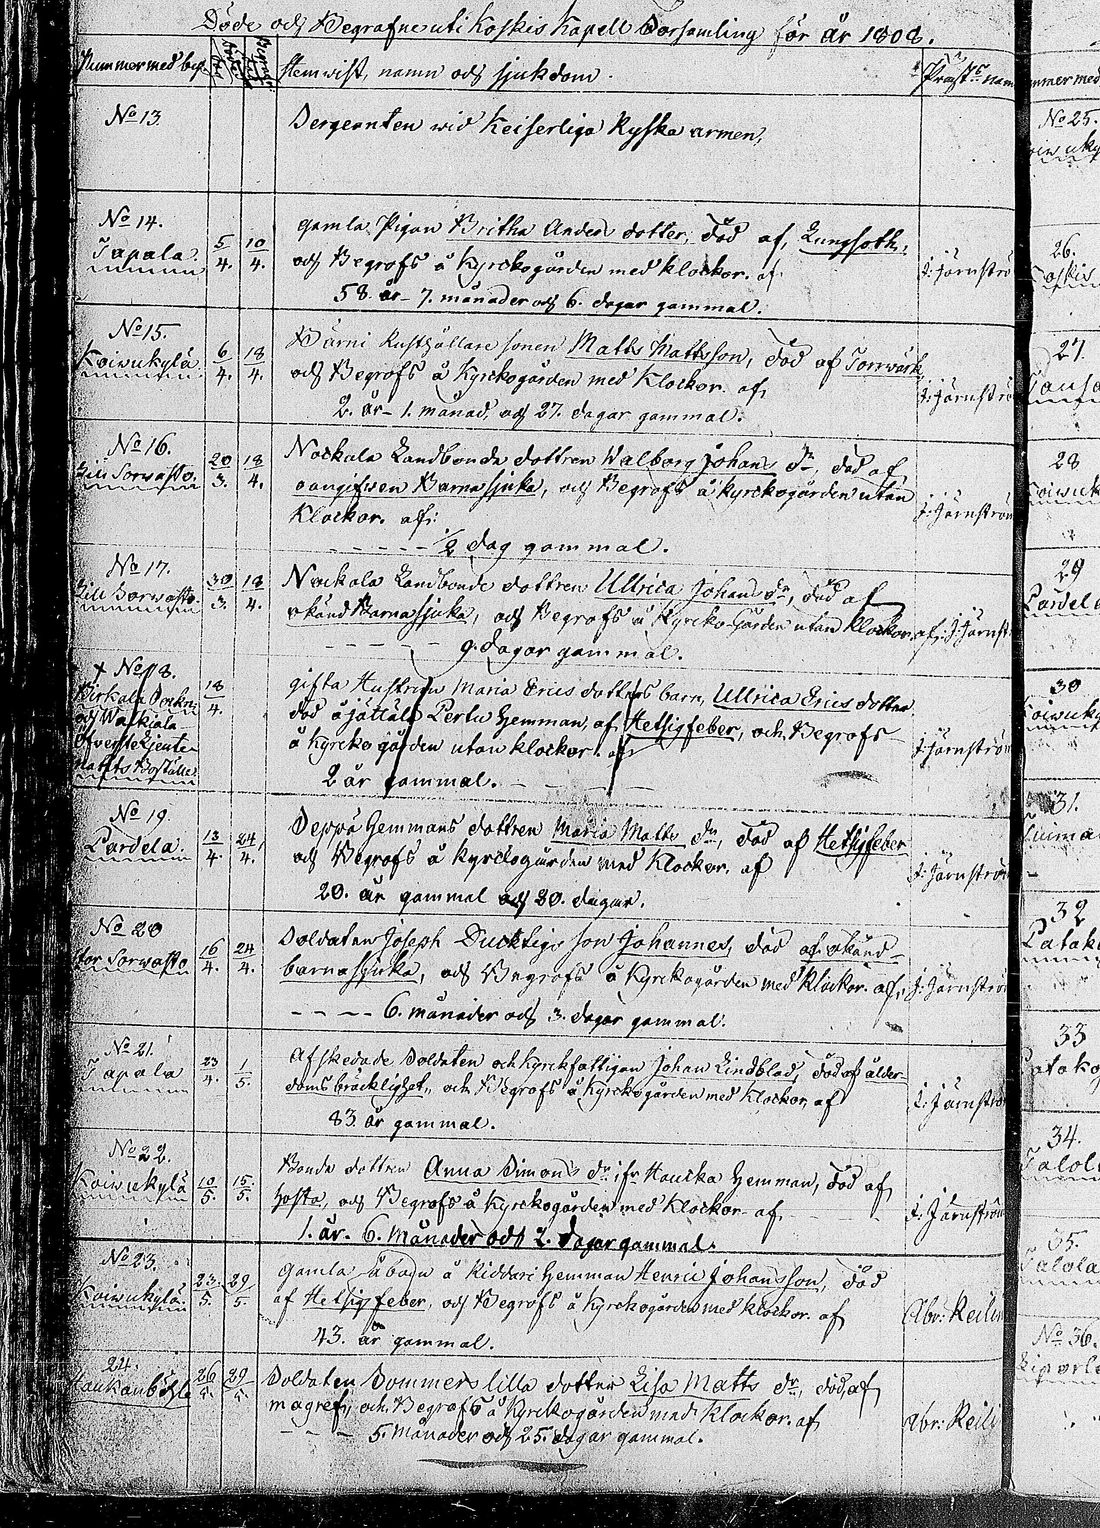 Döde och Begrafne uti Koskis Kapell Forsamling för år 1808.
Nummer med by. Hemwist, namn och sjukdom. Præst:s namn
No 13. Sergeanten wid Keiserliga Ryska armen,
No 14. Gamla Pigan Britha Anders dotter, död af Lungsoth,
Tapala 5/4. 10/4. och Begrofs å Kyrckogården med klockor. af J: Järnströ
58. år 7. månader och 6. dagar gammal.
No 15. Rusthållare sonen Matts Mattsson, död af Torrwärk
Koiwukylä 6/4. 18/4. och Begrofs å Kyrckogården med Klockor. af, J: Järnströ
2. år 1. månad, och 27. dagar gammal.
No 16. Nockala Landbonde dottren Walborg Johans dr, död af
Lill Sorwasto. 20/3. 18/4. oangifwen Barnasjuka, och Begrofs å Kyrckogården utan J: Järnström
Klockor. af:
- - - - - 1/2 dag gammal.
No 17. Nockala Landbonde dottren Ullrica Johans dr, död af
Lill Sorwasto 30/3. 18/4. okänd Barnasjuka, och Begrofs å Kyrcko-Gården utan Klockor. af: J: Järnst
- - - - - 9. dagar gammal.
+ No 18. gifta Hustrun Maria Erics dotters barn, Ullrica Erics dotter
18/4. död å Jättälä Pertu Hemman, af Hetsigfeber, och Begrofs
och Walkiala å Kyrckogården utan klockor. af J: Järnström
2 år gammal. - - - -
No 19. Seppä Hemmans dottren Maria Matts dr, död af Hetsigfeber
Pardela. 13/4. 24/4. och Begrofs å Kyrckogården med Klockor. af J: Järnström
20. år gammal och 20. dagar.
No 20 Soldaten Joseph Ducktigs son Johannes, död af okänd
Stor Sorwasto 16/4. 24/4. barnasjuka, och Begrofs å Kyrckogården med klockor. af, J: Järnström
- - - - 6. månader och 3. dagar gammal.
No 21. Afskedade Soldaten och Kyrckfattigan Johan Lindblad, död af ålder-
Tapala 23/4. 1/5. domsbräcklighet, och Begrofs å Kyrckogården med Klockor, af J: Järnström
83. år gammal.
No 22. Bonde dottren Anna Simons dr ifr Haucka Hemman, död af
Koiwukylä 10/5. 15/5. hosta, och Begrofs å Kyrckogården med Klockor. af J: Järnström
1. år. 6. månader och 2. dagar gammal.
No 23. Gamla å Riddari Hemman Henric Johansson, död
Koiwukylä 23/5. 29/5. af Hetsigfeber, och Begrofs å Kyrckogården med klockor. af Abr: Reilin
43. år gammal.
24. Soldaten Sommers lilla dotter Lisa Matts dr, död, af
26/5. 29/5. magref, och Begrofs å Kyrckogården med Klockor. af Abr: Reili
- - - 5. månader och 25. dagar gammal.
No 25.
26.
27.
28
29
30
31.
32
33
34.
35.
No 36.